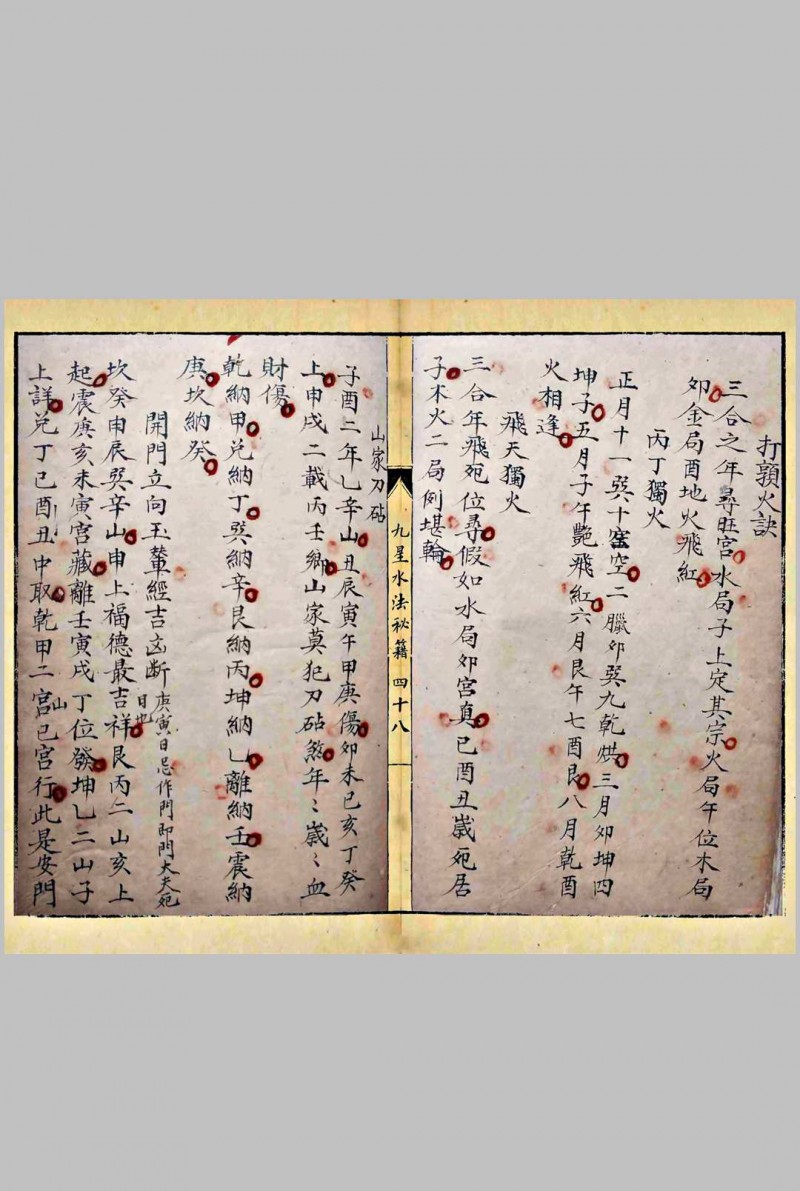 打頸火訣
三合之年尋旺宮水局子上定其宗火局午位木局
卯金局酉地火飛紅
丙丁獨火
正月十一巽十窰空二臘卯巽九乾烘三月卯坤四
坤子五月子午艷飛紅六月艮午七酉艮八月乾酉
火相逢
飛天獨火
三合年飛宛位尋假如水局卯宮真巳酉丑歲宛居
子木火二局例堪輪
九星水法秘籍 四十八
山家刀砧
子酉二年乚辛山丑辰寅午甲庚傷卯未巳亥丁癸
上申戌二載丙壬鄉山家莫犯刀砧煞年〻歲〻血
財傷
乾納甲兌納丁巽納辛艮納丙坤納乚離納壬震納
庚坎納癸
開門立向玉輦經吉凶断庚寅日忌作門即門大夫宛
日也
坎癸申辰巽辛山申上福德最吉祥艮丙二山亥上
起震庚亥未寅宮藏離壬寅戌丁位發坤乚二山子
上詳兌丁巳酉丑山中取乾甲二宮巳宮行此是安門